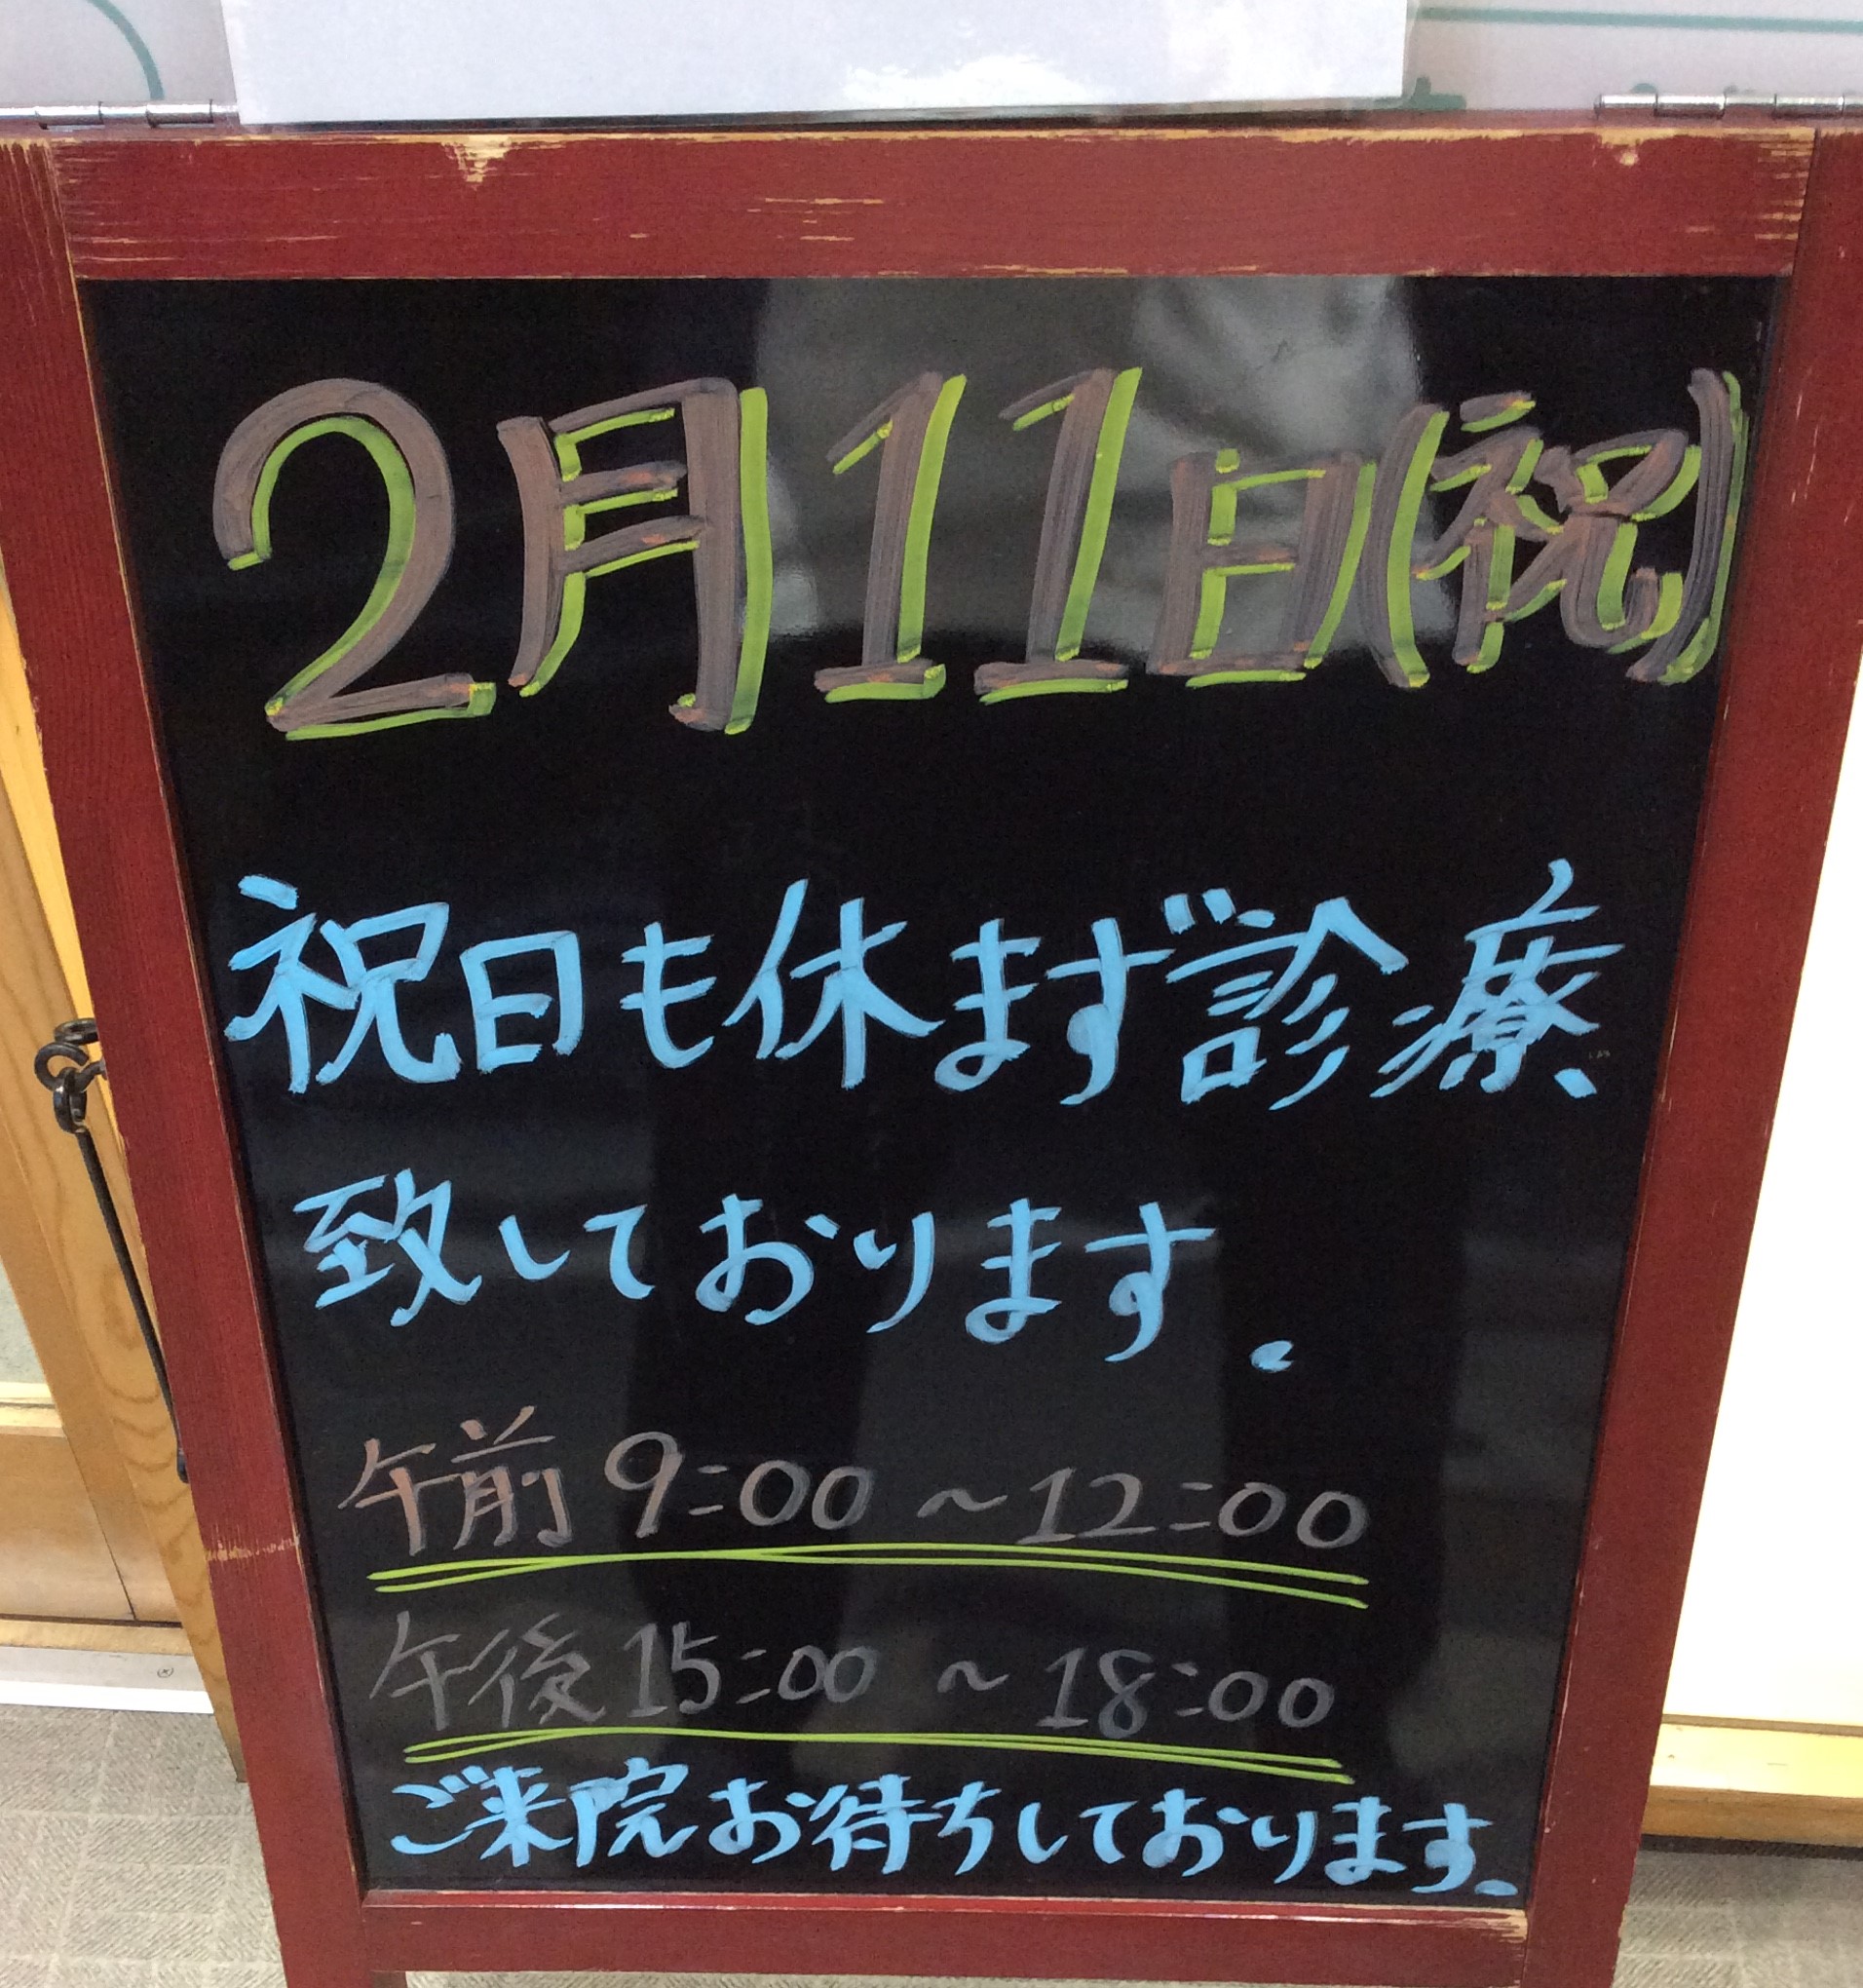 2月11日(祝)
祝日も休まず診療
致しております.
午前 9:00 ~ 12:00
午後 15:00 ~ 18:00
ご来院お待ちしております.